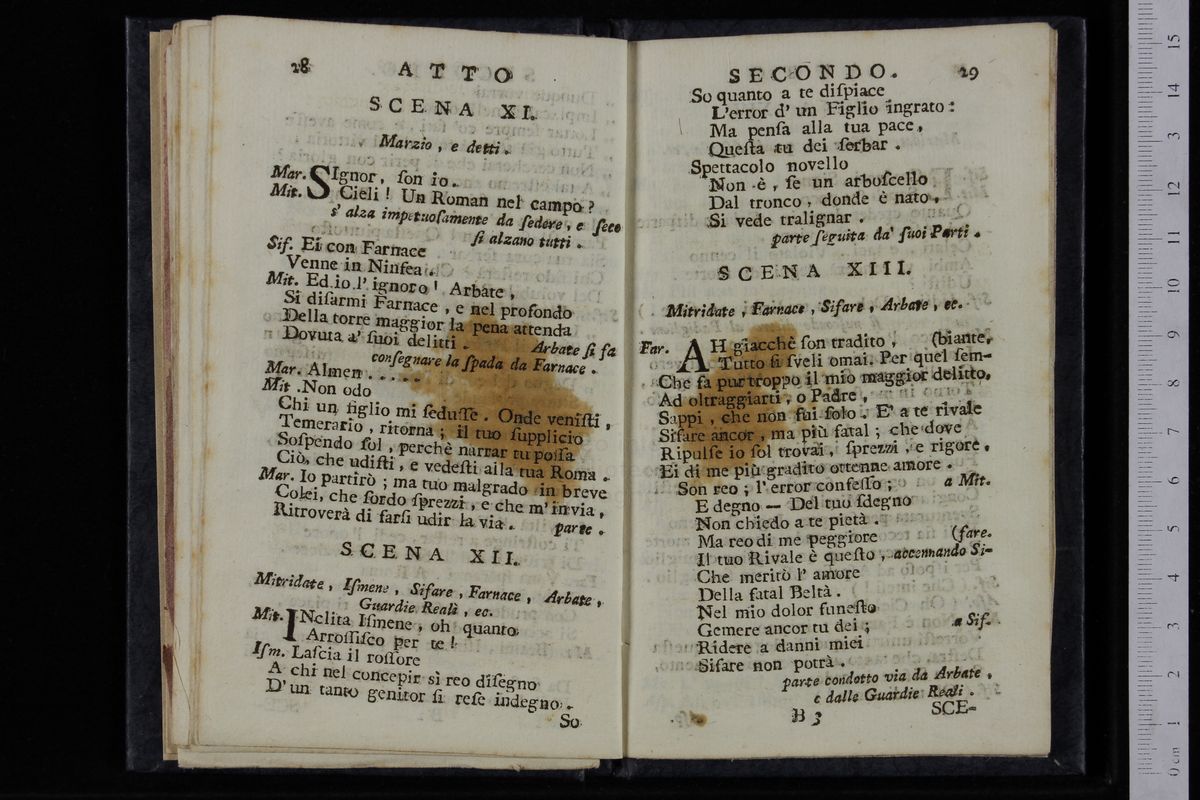 28 ATTO
SCENA XI.
Marzio, e detti.
Mar. SIgnor, ſon io.
Mit. Cieli! Un Roman nel campo?
s' alza impetuoſamente da ſedere, e ſeco
ſi alzano tutti.
Sif. Ei con Farnace
Venne in Ninfea.
Mit. Ed io l' ignoro! Arbate,
Si diſarmi Farnace, e nel profondo
Della torre maggior la pena attenda
Dovuta a' ſuoi delitti. Arbate ſi fa
conſegnare la ſpada da Farnace.
Mar. Almen.....
Mit. Non odo
Chi un figlio mi ſeduſſe. Onde veniſti,
Temerario, ritorna; il tuo ſupplicio
Soſpendo ſol, perchè narrar tu poſſa
Ciò, che udiſti, e vedeſti alla tua Roma.
Mar. Io partirò; ma tuo malgrado in breve
Colei, che ſordo ſprezzi, e che m' invia,
Ritroverà di farſi udir la via. parte.
SCENA XII.
Mitridate, Iſmene, Sifare, Farnace, Arbate,
Guardie Reali, ec.
Mit. INclita Iſmene, oh quanto
Arroſſiſco per te!
Iſm. Laſcia il roſſore
A chi nel concepir sì reo diſegno
D' un tanto genitor ſi reſe indegno.
So
SECONDO. 29
So quanto a te diſpiace
L'error d' un Figlio ingrato:
Ma penſa alla tua pace,
Queſta tu dei ſerbar.
Spettacolo novello
Non è, ſe un arboſcello
Dal tronco, donde è nato,
Si vede tralignar.
parte ſeguita da' ſuoi Parti.
SCENA XIII.
Mitridate, Farnace, Sifare, Arbate, ec.
Far. AH giacchè ſon tradito, (biante,
Tutto ſi ſveli omai. Per quel ſem-
Che fa pur troppo il mio maggior delitto,
Ad oltraggiarti, o Padre,
Sappi, che non fui ſolo. E' a te rivale
Sifare ancor, ma più fatal; che dove
Ripulſe io ſol trovai, ſprezzi, e rigore,
Ei di me più gradito ottenne amore.
Son reo; l' error confeſſo; a Mit.
E degno — Del tuo ſdegno
Non chiedo a te pietà.
Ma reo di me peggiore (fare.
Il tuo Rivale è queſto, accennando Si-
Che meritò l' amore
Della fatal Beltà.
Nel mio dolor funeſto
Gemere ancor tu dei; a Sif.
Ridere a danni miei
Sifare non potrà.
parte condotto via da Arbate,
e dalle Guardie Reali.
B 3 SCE-
15
14
13
12
11
10
9
8
7
6
5
4
3
2
1
0 cm